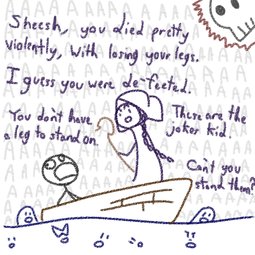 Sheesh, you died pretty
violently, with losing your legs.
I guess you were de-feeted.
You don't have
a leg to stand on.
These are the
joker kid.
Can't you
stand them?